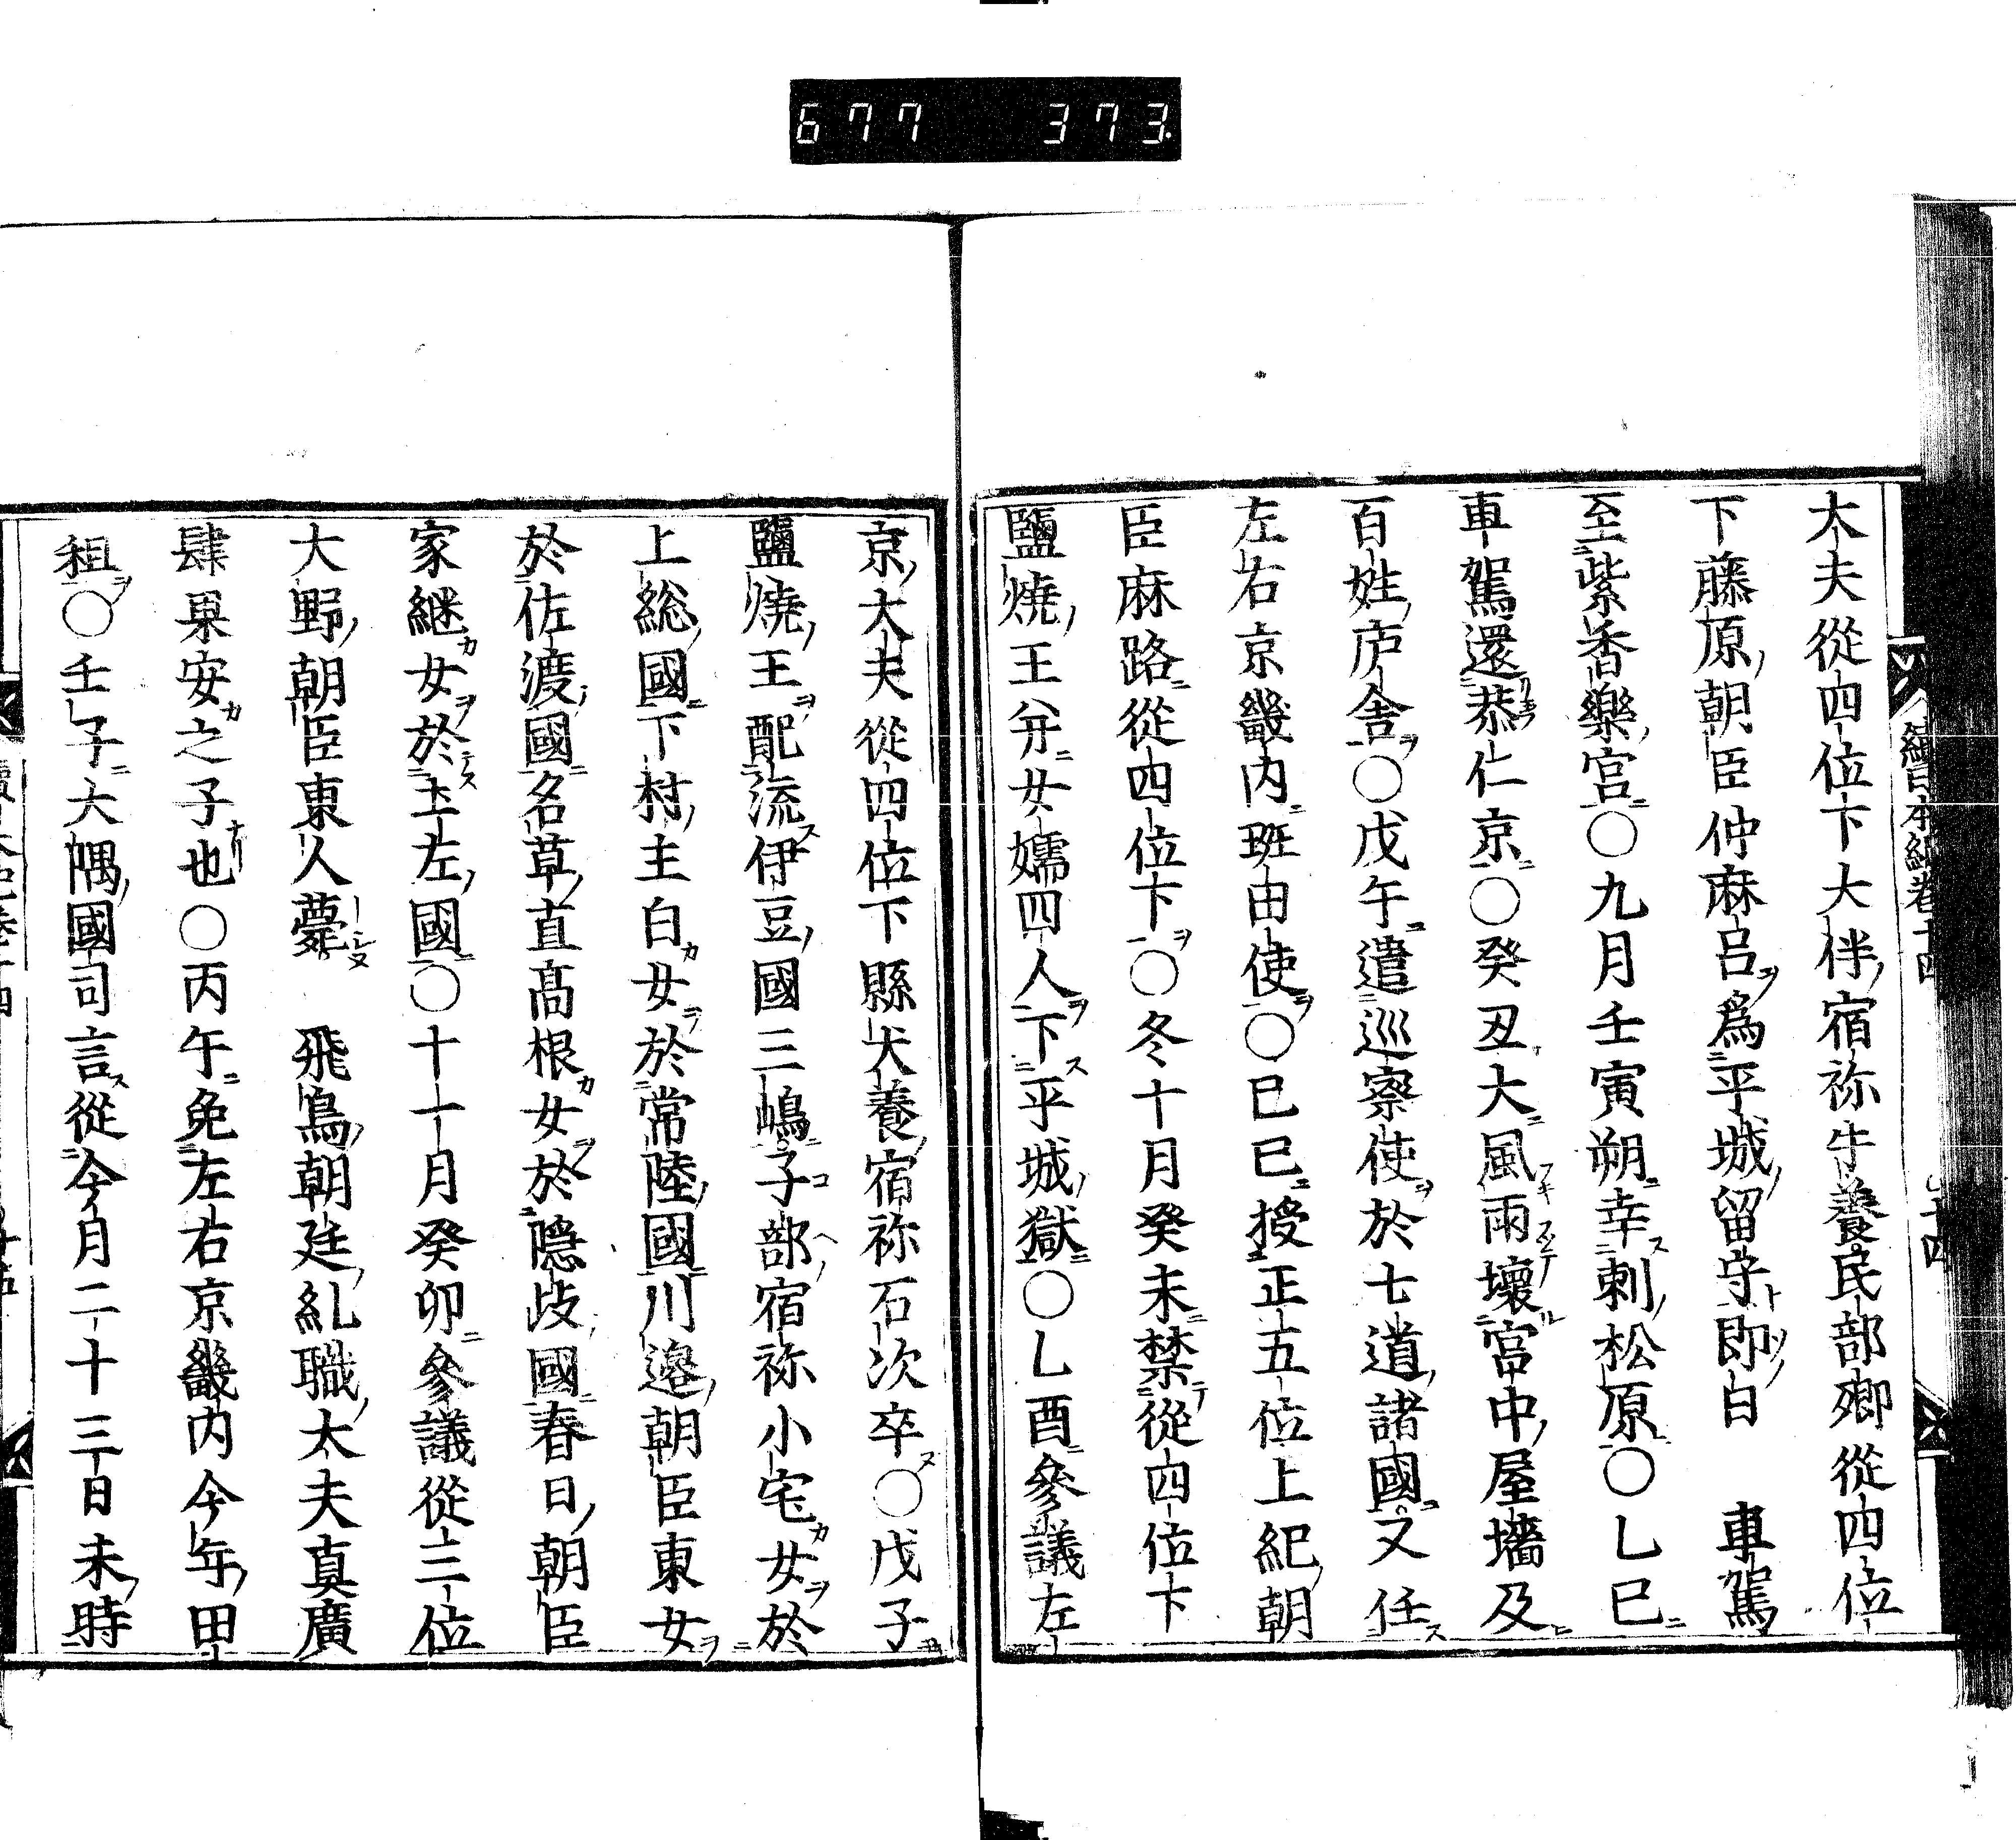 677 373
續日本紀卷十四
太夫從四位下大伴宿祢牛養民部卿從四位
下藤原朝臣仲麻呂爲平城留守即白 車駕
至紫香樂宮〇九月壬寅朔幸刺松原〇乚巳
車駕還恭仁京〇癸丑大風雨壞宮中屋墻及
百姓庐舍〇戊午遣巡察使於七道諸國又任
左右京畿内班田使〇巳巳授正五位上紀朝
臣麻路從四位下〇冬十月癸未禁從四位下
鹽燒王并女孺四人下平城獄〇乚酉參議左
京大夫從四位下縣犬養宿祢石次卒〇戊子
鹽燒王配流伊豆國三嶋子部宿祢小宅女於
上総國下村主白女於常陸國川邉朝臣東女
於佐渡國名草直髙根女於隠歧國春日朝臣
家継女於土左國〇十一月癸卯參議從三位
大野朝臣東人薨 飛鳥朝廷糺職太夫真廣
肆果安之子也〇丙午免左右京畿内今年田
租〇壬子大隅國司言從今月二十三日未時